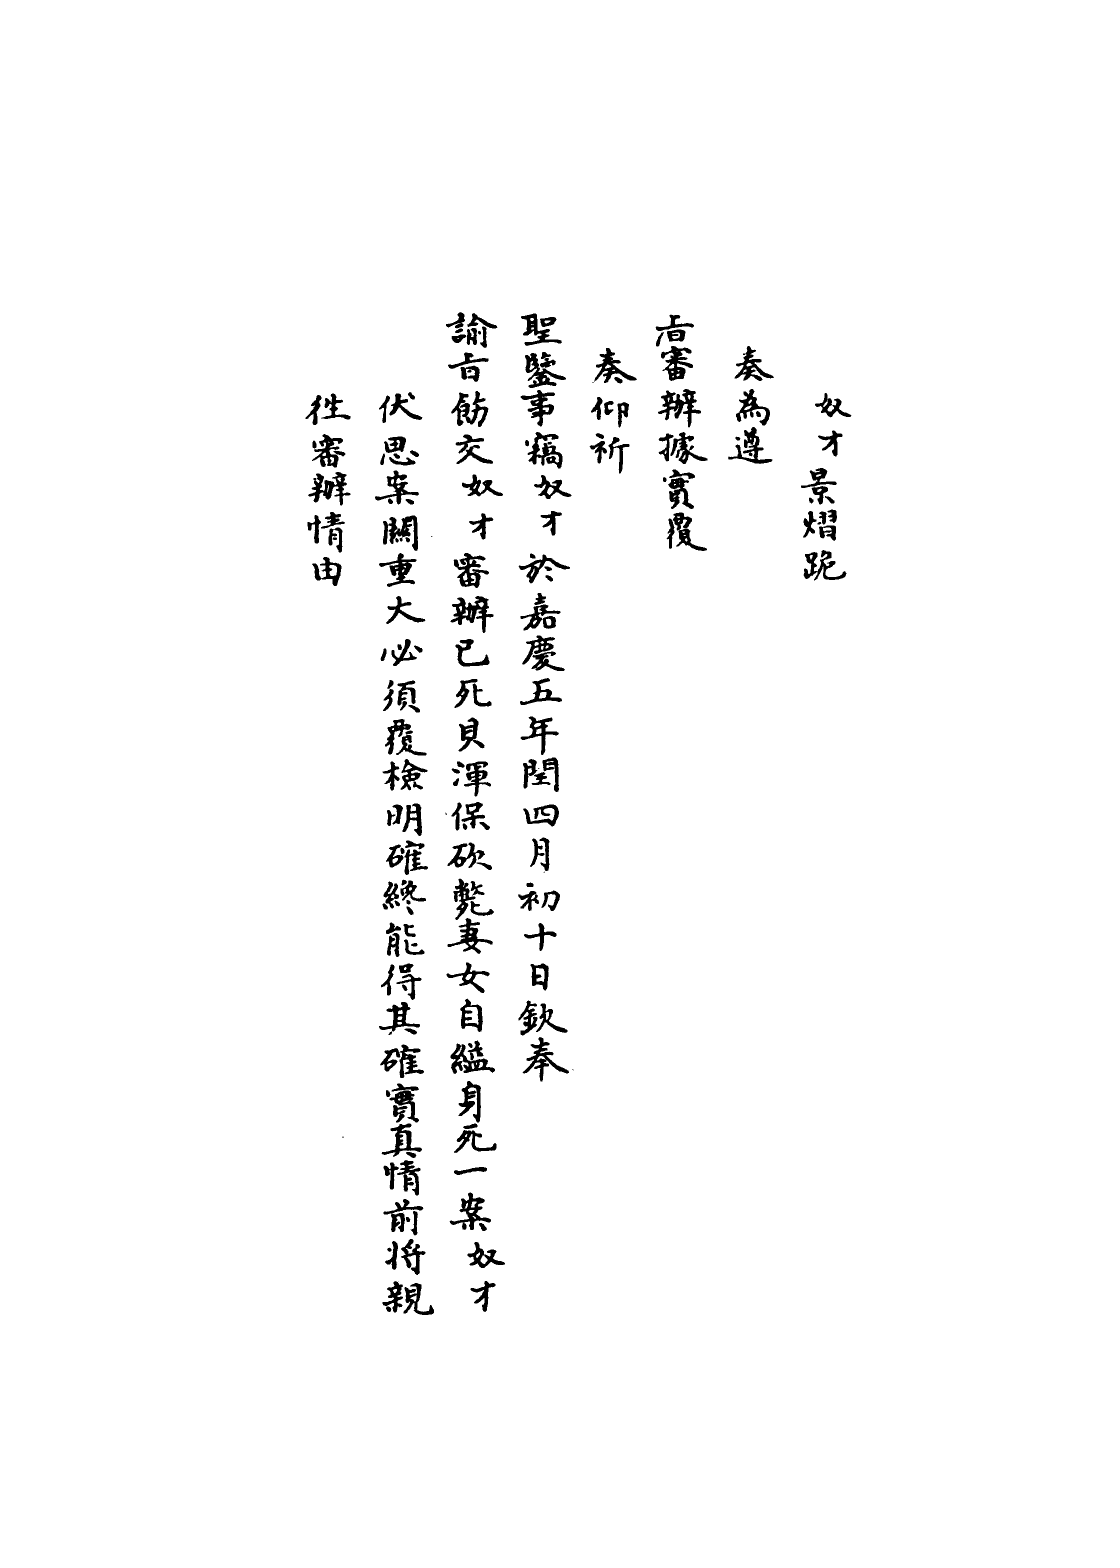 奴才景熠跪
奏為遵
旨審辦據實覆
奏仰祈
聖鑒事竊奴才於嘉慶五年閏四月初十日欽奉
諭旨飭交奴才審辦已死貝渾保砍斃妻女自縊身死一案奴才
伏思案關重大必須覆檢明確終能得其確實真情前將親
徃審辦情由